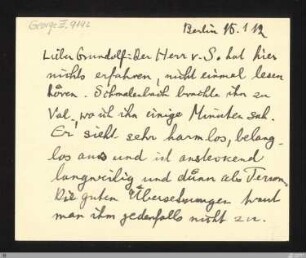 George I, 9192
Berlin 15.1.12
Lieber Gundolf: Der Herr v. S. hat hier
nichts erfahren, nicht einmal lesen
hören. Schmalenbach brachte ihn zu
Val, wo ich ihn einige Minuten sah.
Er sieht sehr harmlos, belang-
los aus und ist ansteckend
langweilig und dünn als Person.
Die guten Übersetzungen traut
man ihm jedenfalls nicht zu.